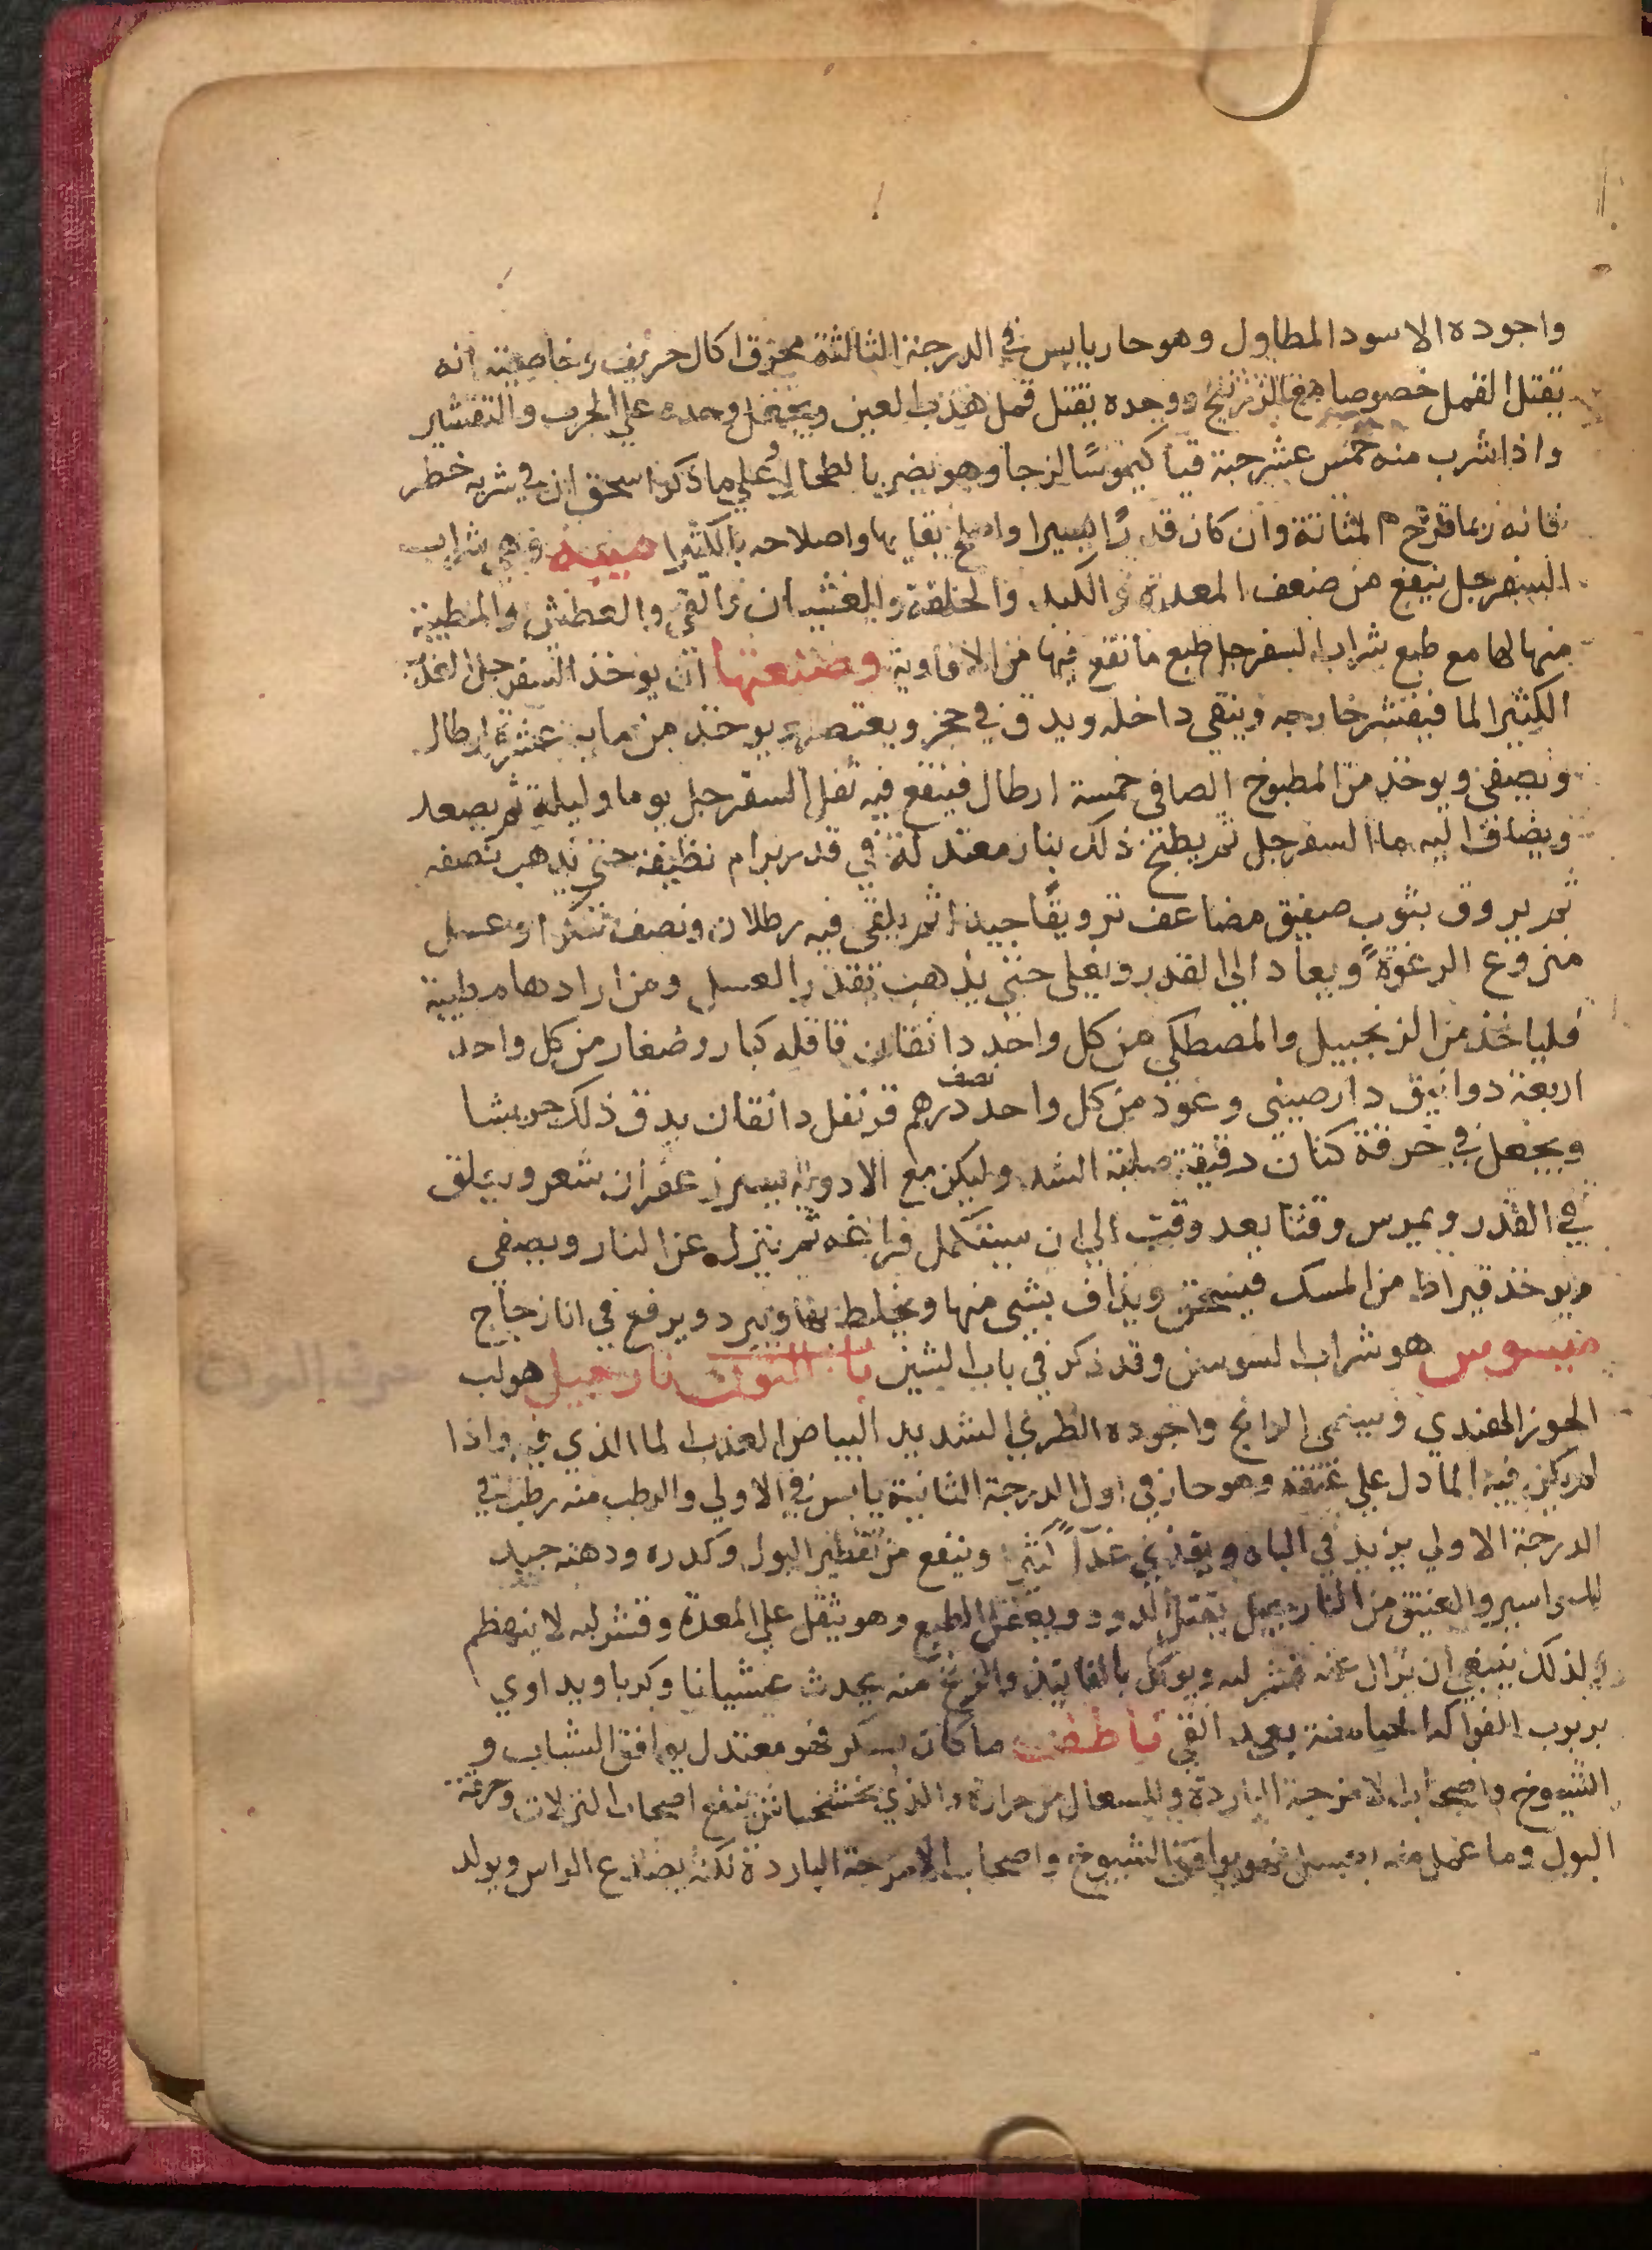 واجوده الاسود المطاول وهو حار يابس في الدرجة الثالثة محرق اكال حريف وخاصيته انه
يقتل القمل خصوصا مع الزرنيخ ووحده يقتل قمل هدب العين ويجعل وحده علي الجرب والتقشير
واذا شرب منه خمس عشر حبة قيا كيموسًا لزجا وهو يضر بالطحال وعلي ما ذكر اسحق ان في شربه خطر
فانه ربما قرح المثانة وان كان قدرًا يسيرا واصلاحه بالكثيرا ميبه وهي شراب
السفرجل ينفع من ضعف المعدة والكبد والخلفة والغشيان والقي والعطش والمطيبة
منها لها مع طبع شراب السفرجل طبع ما نقع فيها من الافاوية وصنعتها ان يوخذ السفرجل
الكثير الما فيقشر خارجه وينقي داخله ويدق في حجر ويعتصر ويوخذ من مايه عشرة ارطال
ويصفي ويوخذ من المطبوخ الصافي خمسة ارطال فينقع فيه ثفل السفرجل يوما وليلة ثم يصعد
ويضاف اليه ما السفرجل ثم يطبخ ذلك بنار معتدلة في قدر برام نظيفه حتي يذهب نصفه
ثم يروق بثوب صفيق مضاعف ترويقًا جيدا ثم يلقي فيه رطلان ونصف سكرا وعسل
منزوع الرغوة ويعاد الي القدر ويغلي حتي يذهب بقدر العسل ومن ارادها مطيبة
فلياخذ من الزنجبيل والمصطكي من كل واحد دانقان قاقله كبار وصغار من كل واحد
اربعة دوانيق دارصيني وعود من كل واحد نصف درهم قرنفل دانقان يدق ذلك جريشا
ويجعل في خرقة كتان دقيقة صلبة الشد وليكن مع الادوية يسير زعفران شعر ويعلق
في القدر ويمرس وقتا بعد وقت الي ان يستكمل فراغه ثم ينزل عن النار ويصفي
ويوخذ قيراط من المسك فيسحق ويذاف بشي منها ويخلط بها ويبرد ويرفع في انا زجاج
ميسوس هو شراب السوسن وقد ذكر في باب الشين باب النون نارجيل هو لب
حرف النون
الجوز الهندي ويسمي الرانج واجوده الطري الشديد البياض العذب لما الذي فيه واذا
لم يكن فيه الما دل علي عتقه وهو حار في اول الدرجة الثانية يابس في الاولي والرطب منه رطب في
الدرجة الاولي يزيد في الباه ويغذي غذآً كثيرا وينفع من تقطير البول وكدره ودهنه جيد
للبواسير والعتيق من النارجيل يقتل الدود ويعقل الطبع وهو يثقل علي المعدة وقشر لبه لا ينهضم
ولذلك ينبغي ان يزال عنه قشر لبه ويوكل بالفانيذ والزنخ منه يحدث غشيانا وكربا ويداوي
بربوب الفواكه الحامضة بعيد القي ناطف ما كان بسكر فهو معتدل يوافق الشباب و
الشيوخ واصحاب الامزجة الباردة وللسعال من حرارة والذي بخشخاش ينفع اصحاب النزلات وحرقة
البول وما عمل منه بعسل فهو يوافق الشيوخ واصحاب الامزجة الباردة لكنه يصدع الراس ويولد